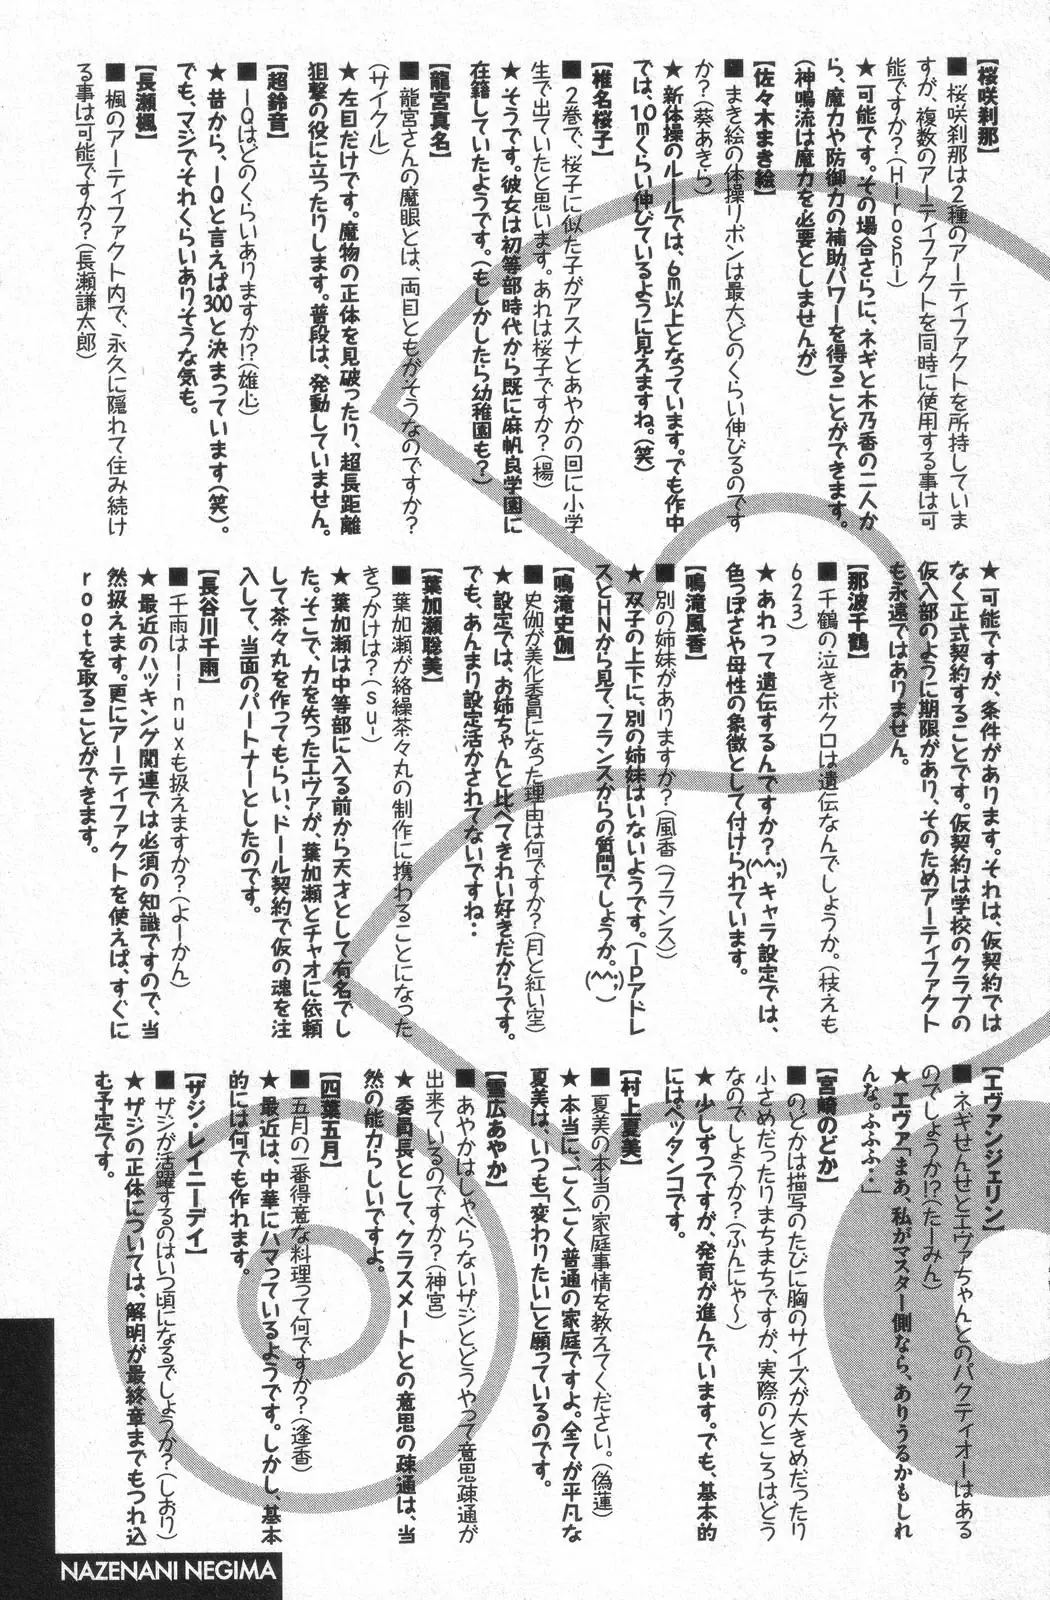 【桜咲刹那】
■桜咲刹那は2種のアーティファクトを所持していま
すが、複数のアーティファクトを同時に使用する事は可
能ですか?(Hiroshi)
★可能です。その場合さらに、ネギと木乃香の二人か
ら、魔力や防御力の補助パワーを得ることができます。
(神鳴流は魔力を必要としませんが)
【佐々木まき絵】
■まき絵の体操リボンは最大どのくらい伸びるのです
か?(葵あきら)
★新体操のルールでは、6m以上となっています。でも作中
では、10mくらい伸びているように見えますね。(笑)
【椎名桜子】
■2巻で、桜子に似た子がアスナとあやかの回に小学
生で出ていたと思います。あれは桜子ですか?(楊)
★そうです。彼女は初等部時代から既に麻帆良学園に
在籍していたようです。(もしかしたら幼稚園も?)
【龍宮真名】
■龍宮さんの魔眼とは、両目ともがそうなのですか?
(サイクル)
★左目だけです。魔物の正体を見破ったり、超長距離
狙撃の役に立ったりします。普段は、発動していません。
【超鈴音】
■IQはどのくらいありますか!?(雄心)
★昔から、IQと言えば300と決まっています(笑)。
でも、マジでそれくらいありそうな気も。
【長瀬楓】
■楓のアーティファクト内で、永久に隠れて住み続け
る事は可能ですか?(長瀬謙太郎)
★可能ですが、条件があります。それは、仮契約では
なく正式契約することです。仮契約は学校のクラブの
仮入部のように期限があり、そのためアーティファクト
も永遠ではありません。
【那波千鶴】
■千鶴の泣きボクロは遺伝なんでしょうか。(枝えも
623)
★あれって遺伝するんですか?(^^;)キャラ設定では、
色っぽさや母性の象徴として付けられています。
【鳴滝風香】
■別の姉妹がありますか?(風香(フランス)
★双子の上下に、別の姉妹はいないようです。(IPアドレ
スとHNから見て、フランスからの質問でしょうか。(^^;))
【鳴滝史伽】
■史伽が美化委員になった理由は何ですか?(月と紅い空)
★設定では、お姉ちゃんと比べてきれい好きだからです。
でも、あんまり設定活かされてないですね‥
【葉加瀬聡美】
■葉加瀬が絡繰茶々丸の制作に携わることになった
きっかけは?(su-)
★葉加瀬は中等部に入る前から天才として有名でし
た。そこで、力を失ったエヴァが、葉加瀬とチャオに依頼
して茶々丸を作ってもらい、ドール契約で仮の魂を注
入して、当面のパートナーとしたのです。
【長谷川千雨】
■千雨はlinuxも扱えますか?(よーかん)
★最近のハッキング関連では必須の知識ですので、当
然扱えます。更にアーティファクトを使えば、すぐに
rootを取ることができます。
【エヴァンジェリン】
■ネギせんせとエヴァちゃんとのパクティオーはある
のでしょうか!?(たーみん)
★エヴァ「まあ、私がマスター側なら、ありうるかもしれ
んな。ふふふ‥」
【宮崎のどか】
■のどかは描写のたびに胸のサイズが大きめだったり
小さめだったりまちまちですが、実際のところはどう
なのでしょうか?(ふんにゃ〜)
★少しずつですが、発育が進んでいます。でも、基本的
にはペッタンコです。
【村上夏美】
■夏美の本当の家庭事情を教えてください。(偽蓮)
★本当に、ごくごく普通の家庭ですよ。全てが平凡な
夏美は、いつも「変わりたい」と願っているのです。
【雪広あやか】
■あやかはしゃべらないザジとどうやって意思疎通が
出来ているのですか?(神宮)
★委員長として、クラスメートとの意思の疎通は、当
然の能力らしいですよ。
【四葉五月】
■五月の一番得意な料理って何ですか?(逢香)
★最近は、中華にハマっているようです。しかし、基本
的には何でも作れます。
【ザジ・レイニーデイ】
■ザジが活躍するのはいつ頃になるでしょうか?(しおり)
★ザジの正体については、解明が最終章までもつれ込
む予定です。
NAZENANI NEGIMA